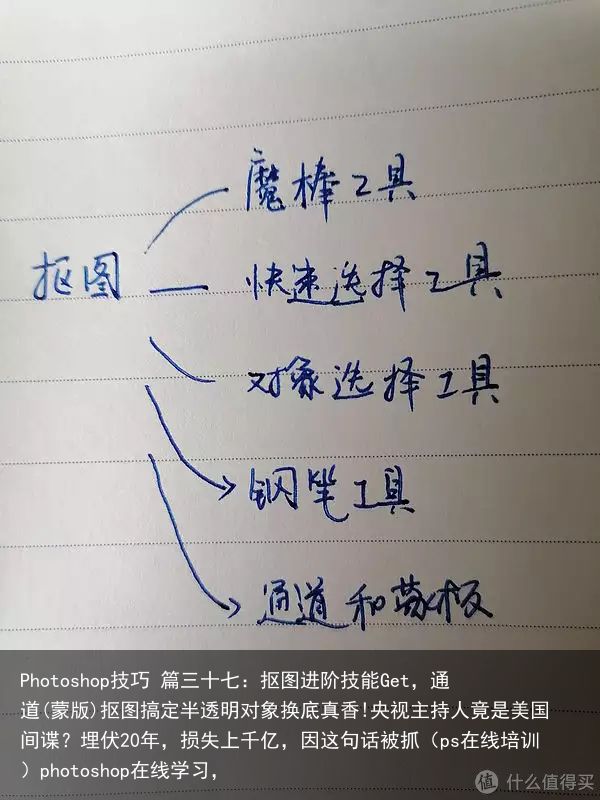 魔棒工具
抠图
快速选择工具
对象选择工具
钢笔工具
通道和蒙板
Photoshop技巧 篇三十七：抠图进阶技能Get，通
道(蒙版)抠图搞定半透明对象换底真香!央视主持人竟是美国
间谍？埋伏20年，损失上千亿，因这句话被抓（ps在线培训
）photoshop在线学习，
值 什么值得买